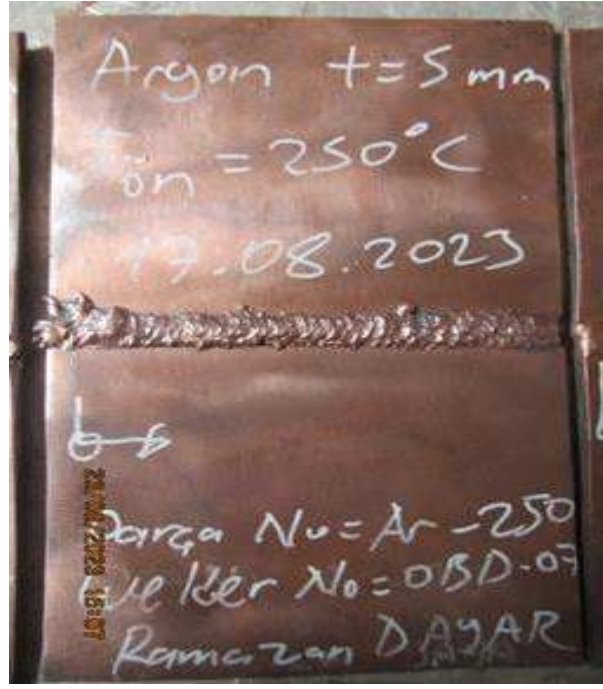 Argon t=5mm
Tön=250°C
17.08.2023
Parça No=Ar-250
Welder No=OBD-07
Ramazan DAYAR